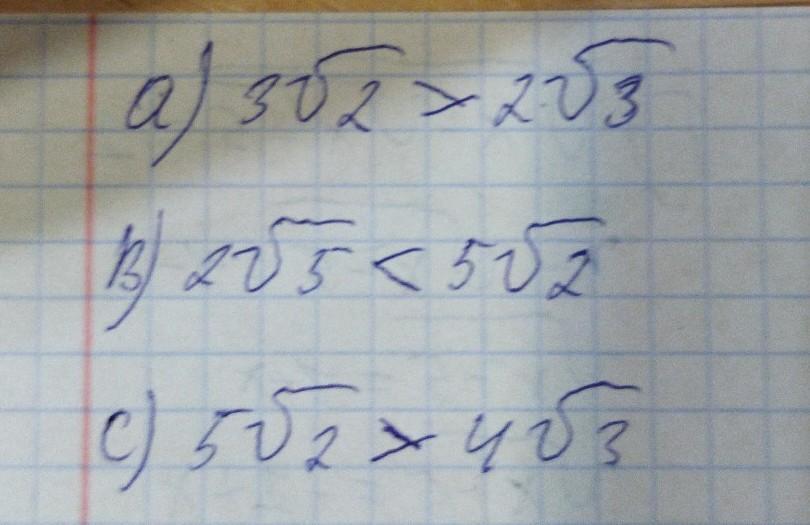 a) 3√2 > 2√3
B) 2√5 < 5√2
C) 5√2 > 4√3